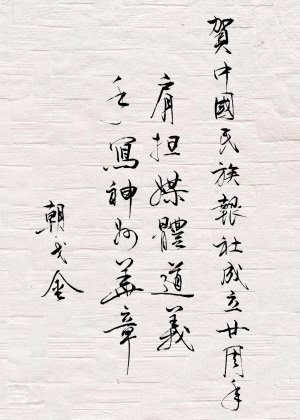 賀中國民族報社成立廿周年
肩担媒體道義
手寫神州華章
朝戈金